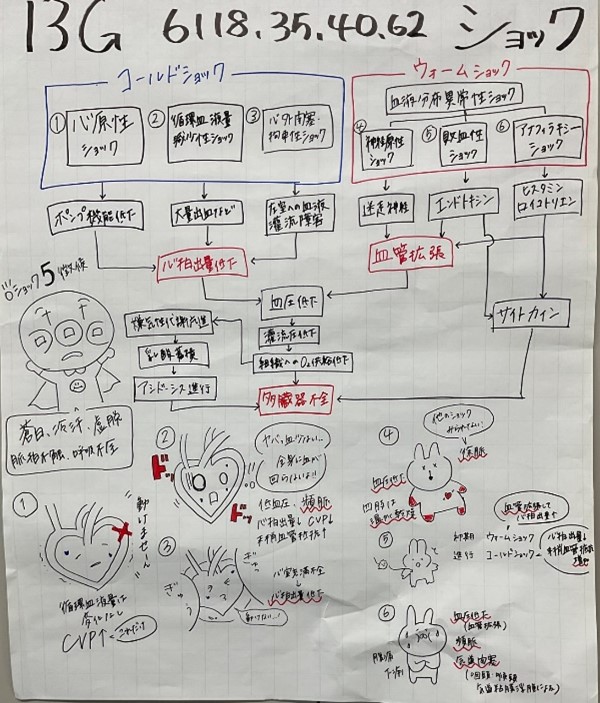 13G 6118.35.40.62 ショック
コールドショック
① 心原性
ショック
② 循環血液量
減少性ショック
③ 心外閉塞・
拘束性ショック
ウォームショック
血液分布異常性ショック
④ 神経原性
ショック
⑤ 敗血性
ショック
⑥ アナフィラキシー
ショック
ポンプ機能低下
大量出血など
左室への血液
灌流障害
迷走神経
エンドトキシン
ヒスタミン
ロイコトリエン
心拍出量低下
血管拡張
血圧低下
灌流圧低下
組織へのO₂供給低下
嫌気性代謝亢進
乳酸蓄積
アシドーシス進行
サイトカイン
多臓器不全
ショック5徴候
蒼白、冷汗、虚脱
脈拍不触、呼吸不全
①
動けません
循環血液量は
変化なし
CVP↑
これだけ
②
ドッ
ドッ
ヤバッ血が少ない…
全身に血が
回らないよ!!
低血圧、頻脈
心拍出量↓ CVP↓
末梢血管抵抗↑
③
ぎゅう
ぎゅ
動けない…!
心室充満不全
↓
心拍出量低下
④
他のショック
みられない!
徐脈
血圧低下
四肢は
温かく乾燥
⑤
初期 ウォームショック
進行 コールドショック
血管拡張して
心拍出量↑
心拍出量↓
末梢血管抵抗
増大
⑥
腹痛
下痢
血圧低下
(血管拡張)
頻脈
気道閉塞